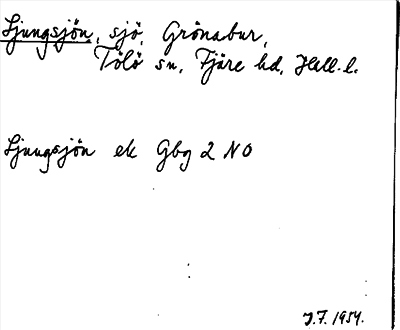 Ljungsjön, sjö, Grönabur,
Tölö sn, Fjäre hd, Hall. l.
Ljungsjön ek Gbg 2 NO
J.F. 1954.